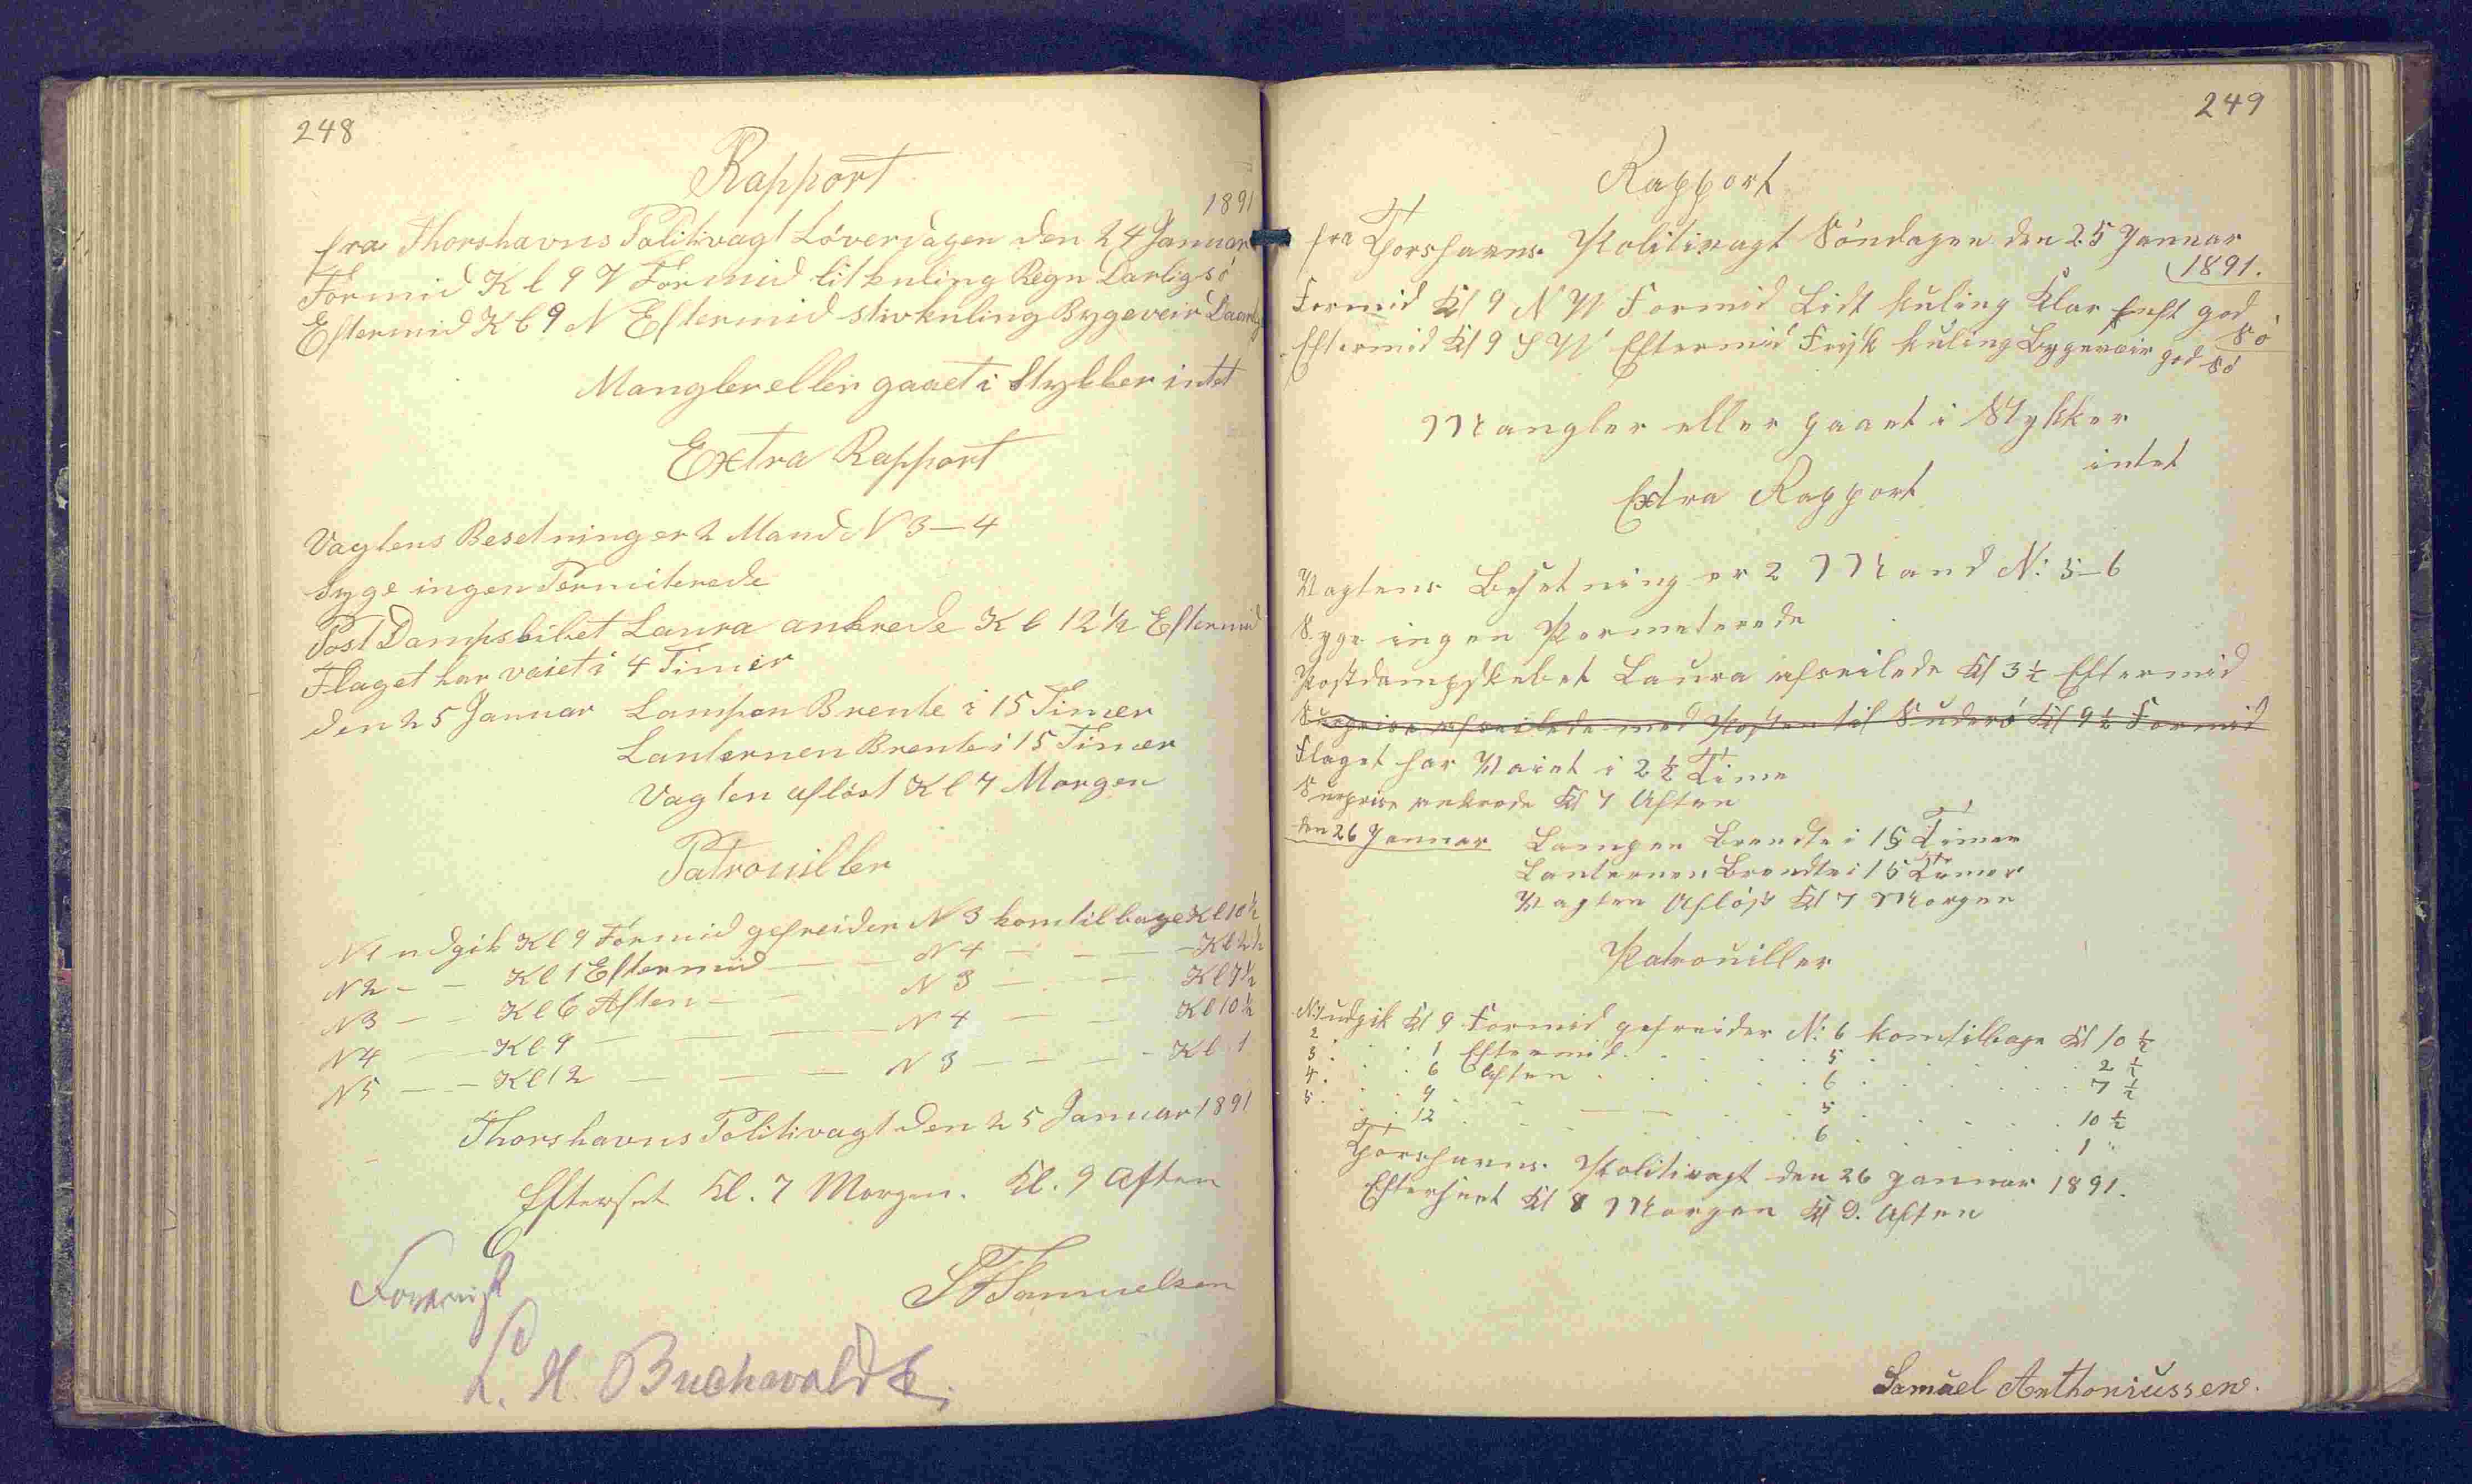 248
Rapport
1891
fra Thorshavns Politivagt Löverdagen den 24 Januar
Formid Kl 9 V Formid lit kuling Regn Darlig sö
Eftermid Kl 9 N Eftermid stivkuling Bygeveir Daarlig
Mangler eller gaaet i Stykker intet
Extra Rapport
Vagtens Besetning er 2 Mand N 3-4
Syge ingen Permiterede
Post Dampskibet Laura ankrede Kl 12½ Eftermid
Flaget har vaiet i 4 Timer
den 25 Januar Lampen Brente i 15 Timer
Lanternen Brente i 15 Timer
Vagten aflöst Kl 7 Morgen
Patrouiller
N1 udgik Kl 9 Formid gefreider N 3 kom tilbage Kl 10½
N2 — — Kl 1 Eftermid — — N 4 — — — Kl 2½
N3 — — Kl 6 Aften — — N 3 — — Kl 7½
N4 — — Kl 9 — — — N 4 — — Kl 10½
N5 — — Kl 12 — — — N 3 — — — Kl 1
Thorshavns Politivagt den 25 Januar 1891
Efterset Kl. 7 Morgen. Kl. 9 Aften
S F Samuelsen
Forevist
L. H. Buchwaldt.
249
Rapport
fra Thorshavns Politivagt Söndagen den 25 Januar
1891.
Formid Kl 9 N W Formid Lidt kuling Klar luft god
Sö
Eftermid Kl 9 S W Eftermid Frisk kuling Bygeveir god Sö
Mangler eller gaaet i Stykker
intet
Extra Rapport
Vagtens Besetning er 2 Mand N: 5-6
Syge ingen Permeterede
Postdampskibet Laura afseilede Kl 3½ Eftermid
Surprise afseilede med Posten til Suderö Kl 9½ Formid
Flaget har Vaiet i 2½ Time
Surprise ankrede Kl 7 Aften
den 26 Januar Lampen Brendte i 15 Timer
Lanternen Brendte i 15 Timer
Vagten Aflöst Kl 7 Morgen
Patrouiller
N: 1 udgik Kl 9 Formid gefreider N: 6 kom tilbage Kl 10½
2 . . . 1 Eftermid . . . 5 . . . 2½
3 . . . 6 Aften . . . 6 . . . 7½
4 . . . 9 . . . 5 . . . 10½
5 . . . 12 . . . 6 . . . 1 "
Thorshavns Politivagt den 26 Januar 1891.
Efterseet Kl 8 Morgen Kl 9. Aften
Samuel Anthoniussen.